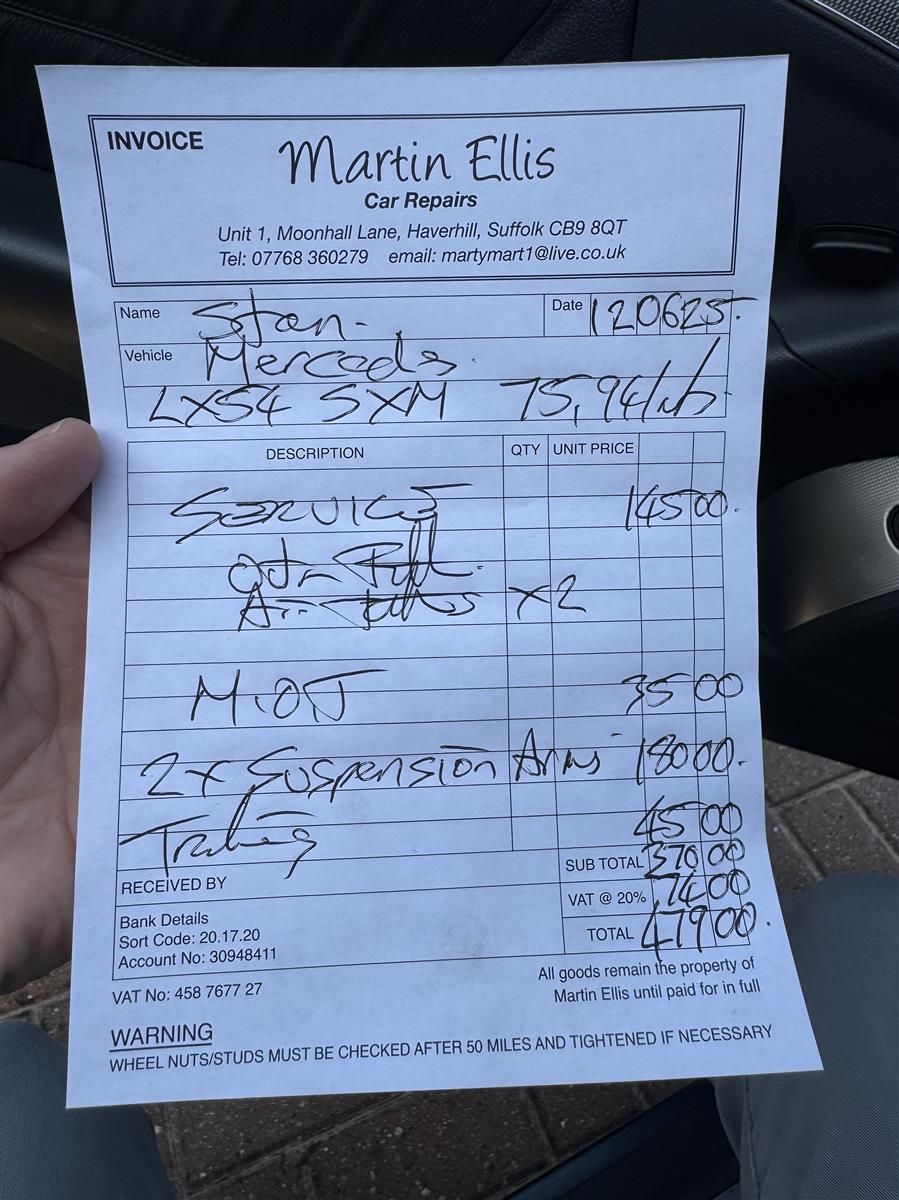 INVOICE
Martin Ellis
Car Repairs
Unit 1, Moonhall Lane, Haverhill, Suffolk CB9 8QT
Tel: 07768 360279 email: martymart1@live.co.uk
Name Stan. Date 120625.
Vehicle Mercedes.
LX54 SXM 75,94
DESCRIPTION QTY UNIT PRICE
SERVICE 145 00.
Air X2
M.O.T 35 00
2x Suspension Arms 180 00.
Tracking 45 00
SUB TOTAL 370 00
RECEIVED BY
VAT @ 20% 74 00
TOTAL 479 00.
Bank Details
Sort Code: 20.17.20
Account No: 30948411
VAT No: 458 7677 27
All goods remain the property of
Martin Ellis until paid for in full
WARNING
WHEEL NUTS/STUDS MUST BE CHECKED AFTER 50 MILES AND TIGHTENED IF NECESSARY